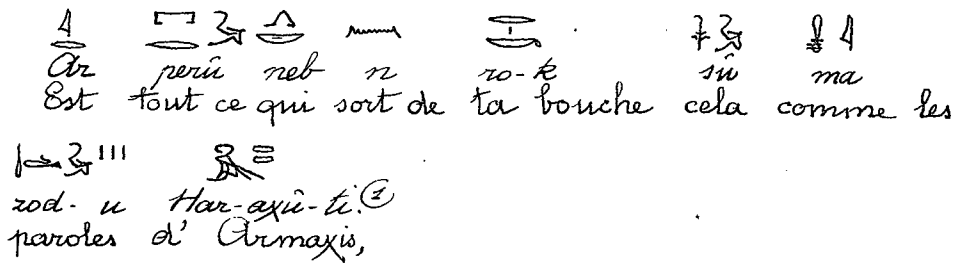 Ar perû neb n ro-k sû ma
Est tout ce qui sort de ta bouche cela comme les
zod-u Har-axû-ti. (1)
paroles d' Armaxis,